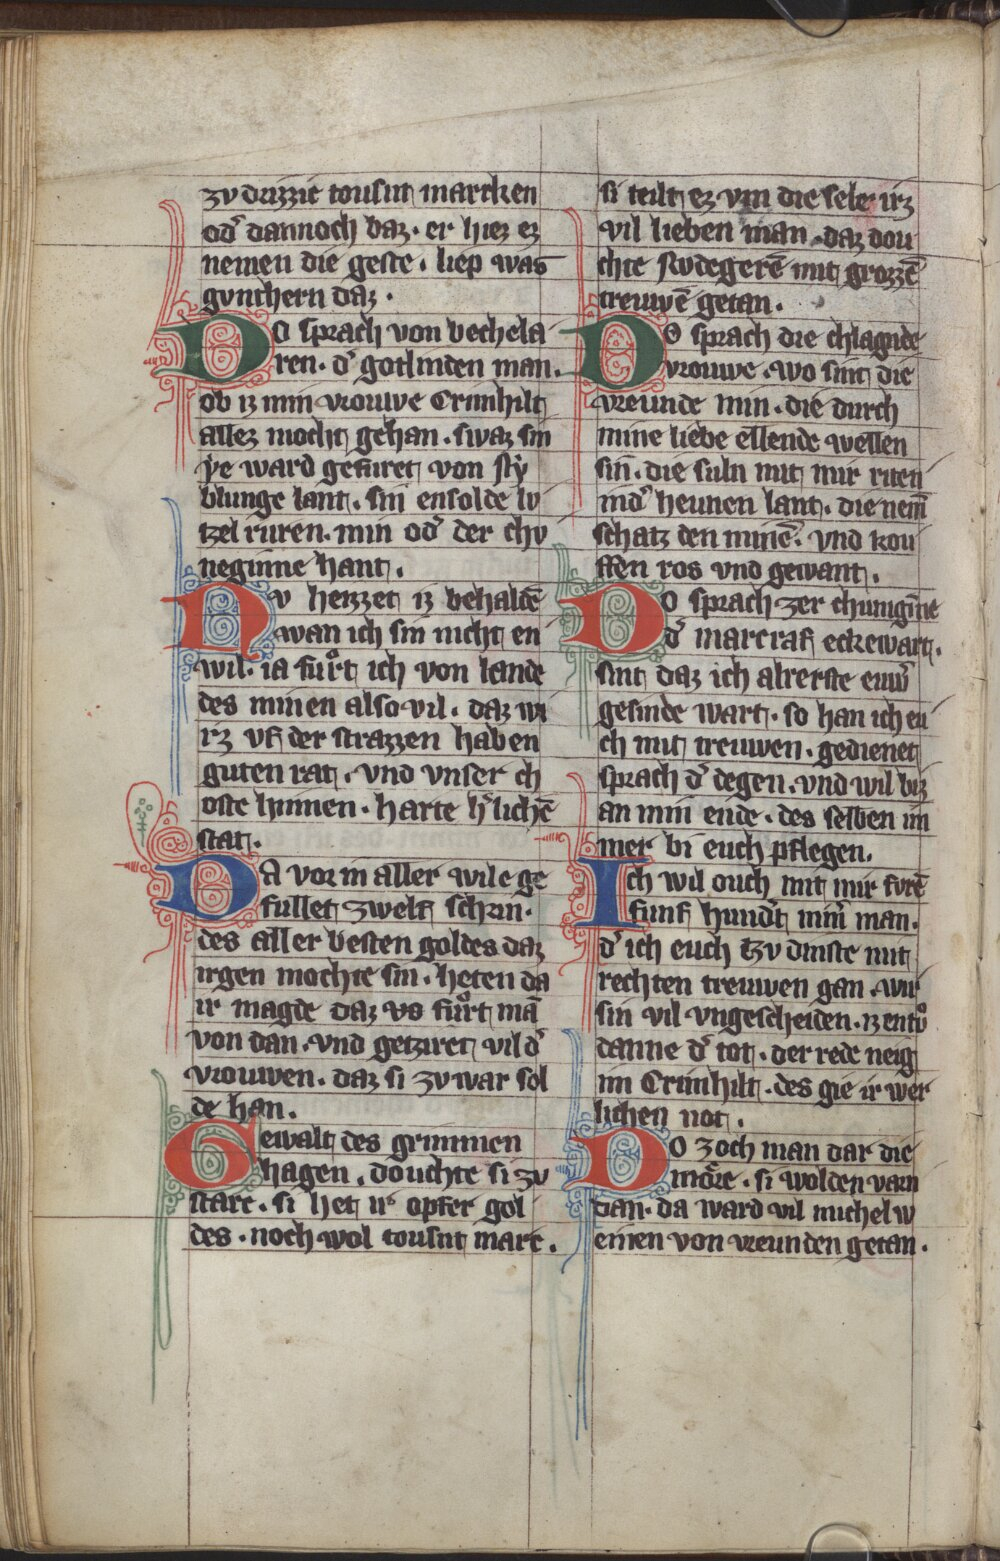 zv drizzic tousnt marcken
od̉ dannoch baz. er hiez ez
nemen die geste. liep was
gvnthern daz.
Do sprach von bechela
ren. d̉ gotlinden man.
ob iz min vrouwe Crimhilt
allez mocht gehan. swaz sin
ye ward gefuret von Ny
blunge lant. sin ensolde lv
tzel ruren. min od̉ der chv
neginne hant.
Nv heizzet iz behaldē
wan ich sin nicht en
wil. ia fuͦrt ich von lande
des minen also vil. daz wi
rz vf der strazzen haben
guten rat. vnd vnser ch
oste hinnen. harte h̉lichē
stat.
Da vor in aller wile ge
fullet zwelf schrin.
des aller besten goldes daz
irgen mochte sin. heten da
ir magde daz vō fuͦrt mā
von dan. vnd getziret vil d̉
vrouwen. daz si zv war sol
de han.
Gewalt des grimmen
hagen. douchte si zv
starc. si het ir opfer gol
des. noch wol tousnt marc.
si teilt ez vm die sele irz
vil lieben man. daz dou
chte Rvdegerē mit grozzē
treuwē getan.
Do sprach die chlagnde
vrouwe. wo sint die
vreunde min. die durch
mine liebe ellende wellen
sin. die suln mit mir riten
ind̉ heunen lant. die nem̄
schatz den minē. vnd kou
ffen ros vnd gewant.
Do sprach zer chunigīne
d̉ marcraf eckewart.
sint daz ich alrerste euw̉
gesinde wart. so han ich eu
ch mit treuwen. gedienet
sprach d̉ degen. vnd wil biz
an min ende. des selben im
mer bi euch pflegen.
Ich wil ouch mit mir fvrē
funf hund̉t minr̄ man.
d̉ ich euch tzv dinste mit
rechten treuwen gan. wir
sin vil vngescheiden. iz entuͦ
danne d̉ tot. der rede neig
im Crimhilt. des gie ir wer
lichen not.
Do zoch man dar die
moͤre. si wolden varn
dan. da ward vil michel w
einen von vreunden getan.